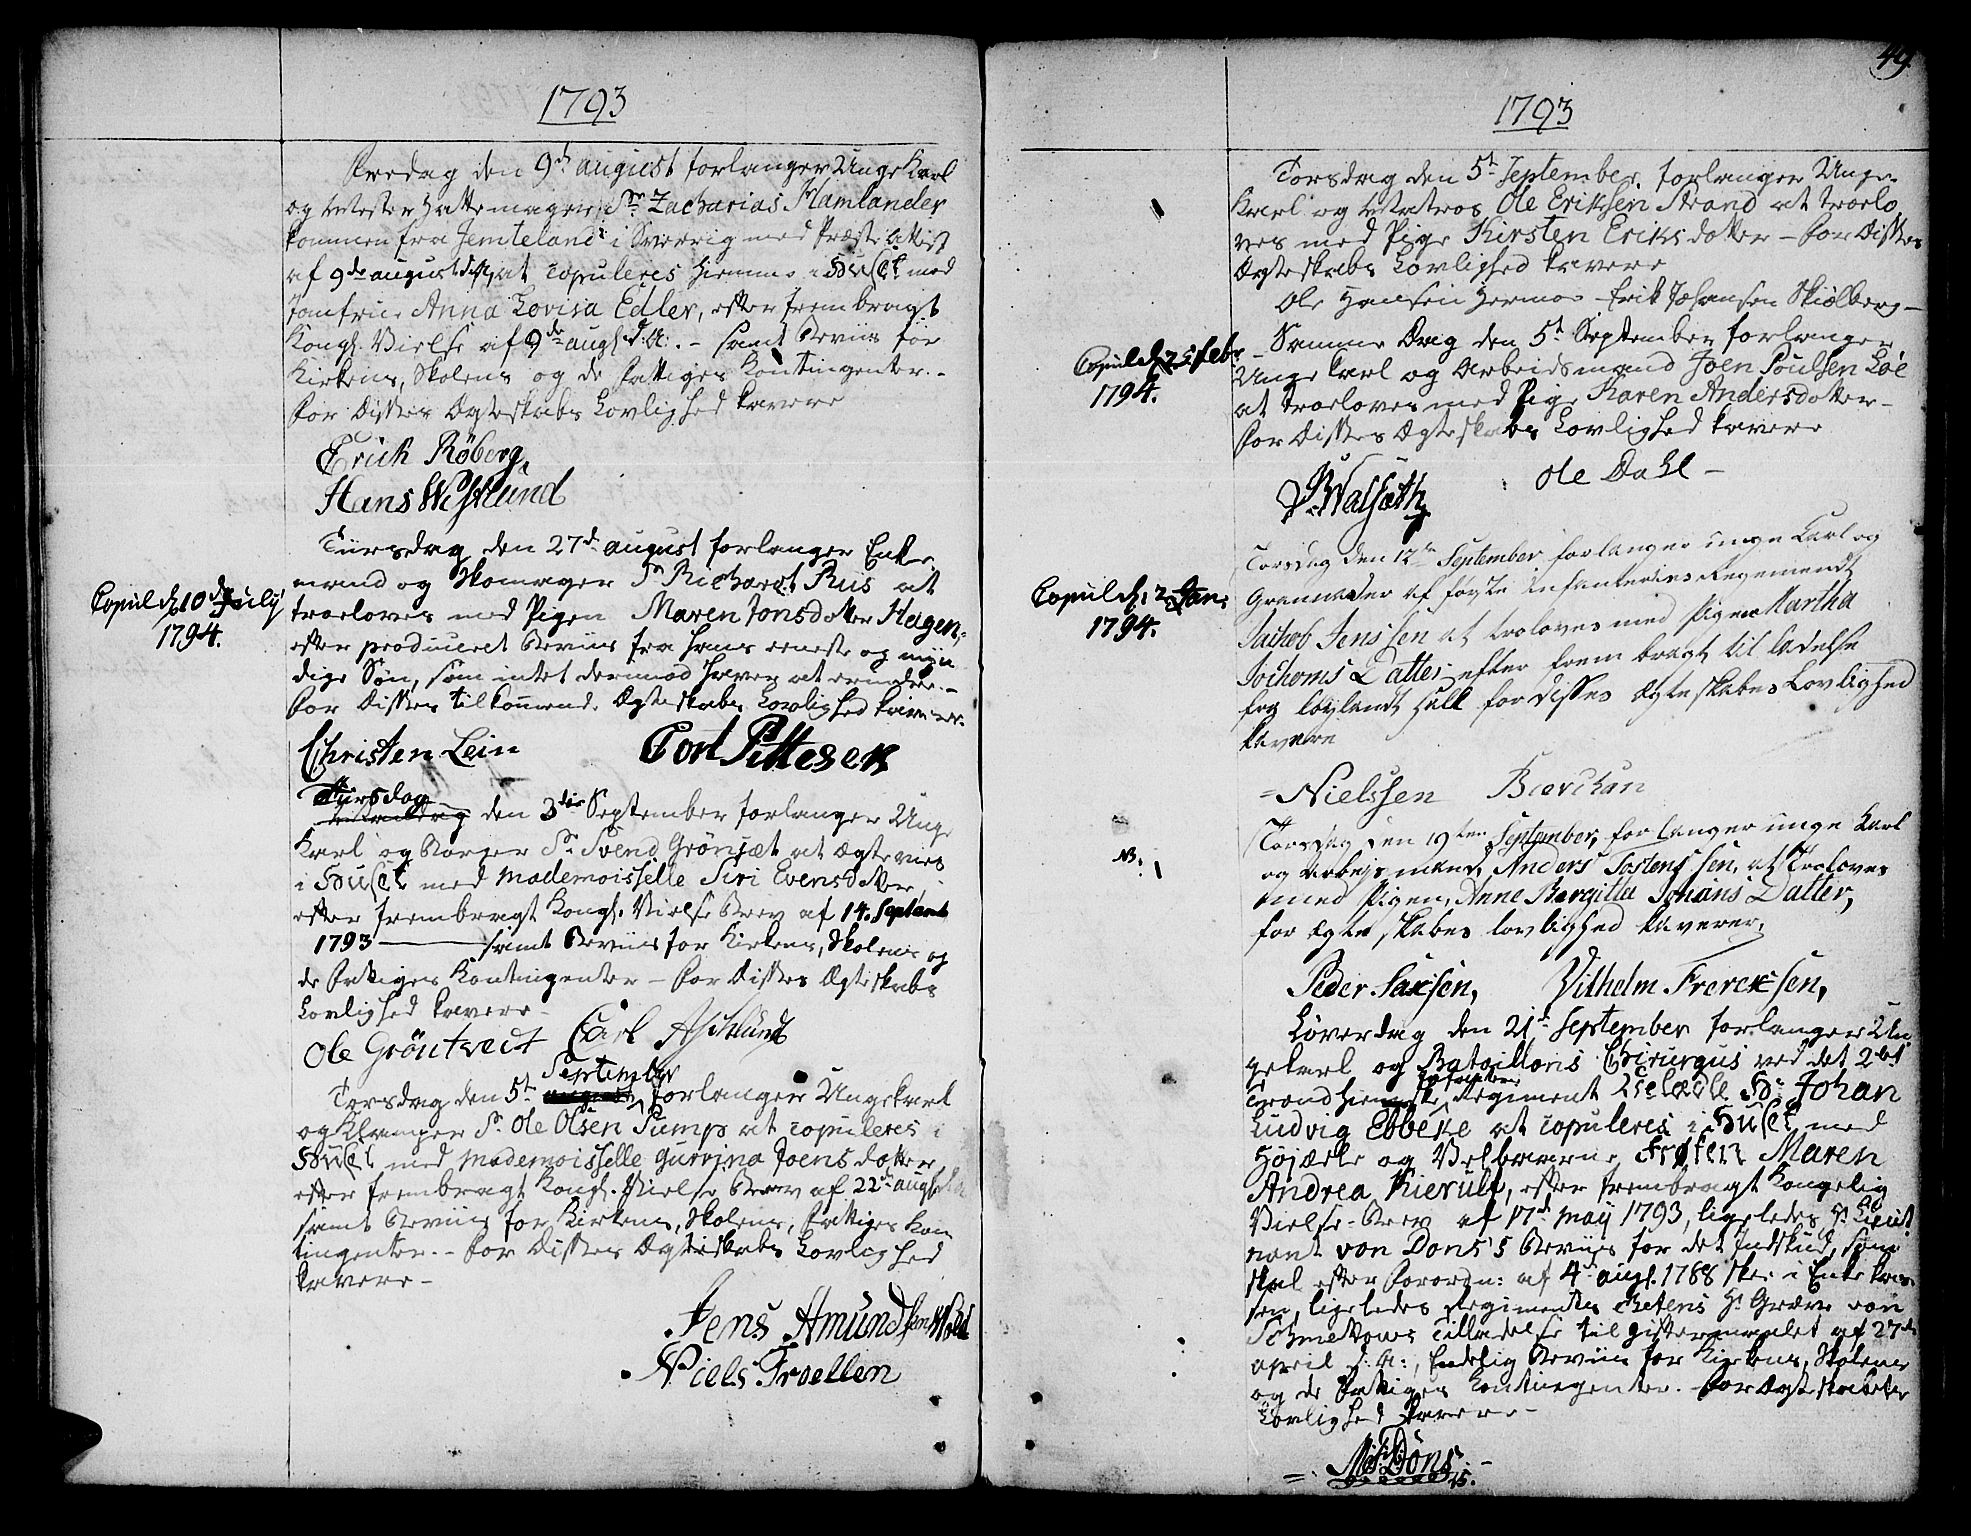 1793
Fredag den 9de august forlanger Unge Karl
og Mester Hattemager Sr Zacharias Hamlander
kommen fra Jemteland i Sverrig med Præste Attest
af 9de august d. A, at copuleres hiemme i Huset med
Jomfrue Anna Lovisa Edler, efter frembragt
Kongl. Vielse af 9de augl d: A: - samt Beviis for
Kirkens, Skolens og de Fattiges Contingenter. -
For Disses Ægteskabs Lovlighed kavere
Erich Röberg,
Hans Westlund
Tiirsdag den 27de august forlanger Enke
mand og Skomager Sr Richardt Riis at
troeloves med Pigen Maren Jonsdotter Hagen,
efter produceret Beviis fra hans eeneste og myn
dige Søn, som intet dermod haver at erindre. -
For Disses tilkommende Ægteskabs Lovlighed kaverer.
Copul d. 10de July
1794.
Christen Lein Cort Pettesen
Tiirsdag
den 3die September forlanger Unge
Karl og Borger Sr Svend Grönsæt at Ægtevies
i Huset med Mademoisselle Siri Evensdotter,
efter frembragt Kongl. Vielse Brev af 14. Septemb
1793 samt Beviis for Kirkens, Skolens og
de Fattiges Contingenter - For Disses Ægteskabs
Lovlighed kavere -
Ole Gröntvedt Carl Aschlund
September
Torsdag den 5te forlanger Ungekarl
og Klamper Sr Ole Olsen Sumps at copuleres i
Huset med Mademoisselle Gurvina Joensdotter
efter frembragt Kongl. Vielse Brev af 22de augl d. A
samt Beviis for Kirkens, Skolens, Fattiges Kon
tingenter. - For Disses Ægteskabs Lovlighed
kavere -
Jens Amundsen Wold
Niels Troellen
49.
1793
Torsdag den 5te September forlanger Unge
Karl og Matros Ole Eriksen Strand at troelo
ves med Pige Kirsten Eriksdotter - For Disses
Ægteskabs Lovlighed kavere
Ole Hansen Hermoe Erik Johansen Skiølberg -
Samme Dag den 5te September forlanger
Unge Karl og Arbeidsmand Joen Poulsen Löe
at troeloves med Pige Karen Andersdotter -
For Disses Ægteskabs Lovlighed kavere
Copul d. 25 febr
1794.
P. Walsæth Ole Dahl -
Torsdag den 12te September forlanger unge Karl og
Granadeer af første Infanteries Regemendt
Jachob Jenssen at troloves med Pigen Martha
Jochoms Datter, efter frem bragt til ladelse
fra löytnant Hall for Disses Ægteskabes Lovlighed
kavere
Copul d. 2 Jan:
1794.
= Nielssen Bierchan
Torsdag den 19ten September, for langer unge Karl
og arbejsmand, Anders Tostenssen, at Troloves
med Pigen, Anne Bergitta Johans Datter,
for Ægteskabes lovlighed kaverer,
NB:
Peder Saxsen, Vilhelm Frercksen,
Löverdag den 21de September forlanger Un
gekarl og Batoillons Chirurgus ved det 2det
Trondhiemske Regiment Velædle Hr Johan
Infanterie
Ludvig Ebbeke at copuleres i Huset med
Höjædle og Velbaarne Frøken Maren
Andrea Kierulf, efter frembragt Kongelig
Vielse-Brev af 17de maij 1793, ligeledes Hr Lieut
nant von Dons's Beviis for det Indskud, som
skal efter Forordn: af 4de augl. 1788 skee i Enke kas
sen, ligeledes Regimentes Chefens Hr Greve von
Schmettows Tilladelse til giftermaalet af 27de
april d: A:, Endelig Beviis for Kirkens, Skolens
og de Fattiges Contingenter. For Ægteskabets
Lovlighed kavere -
Dons